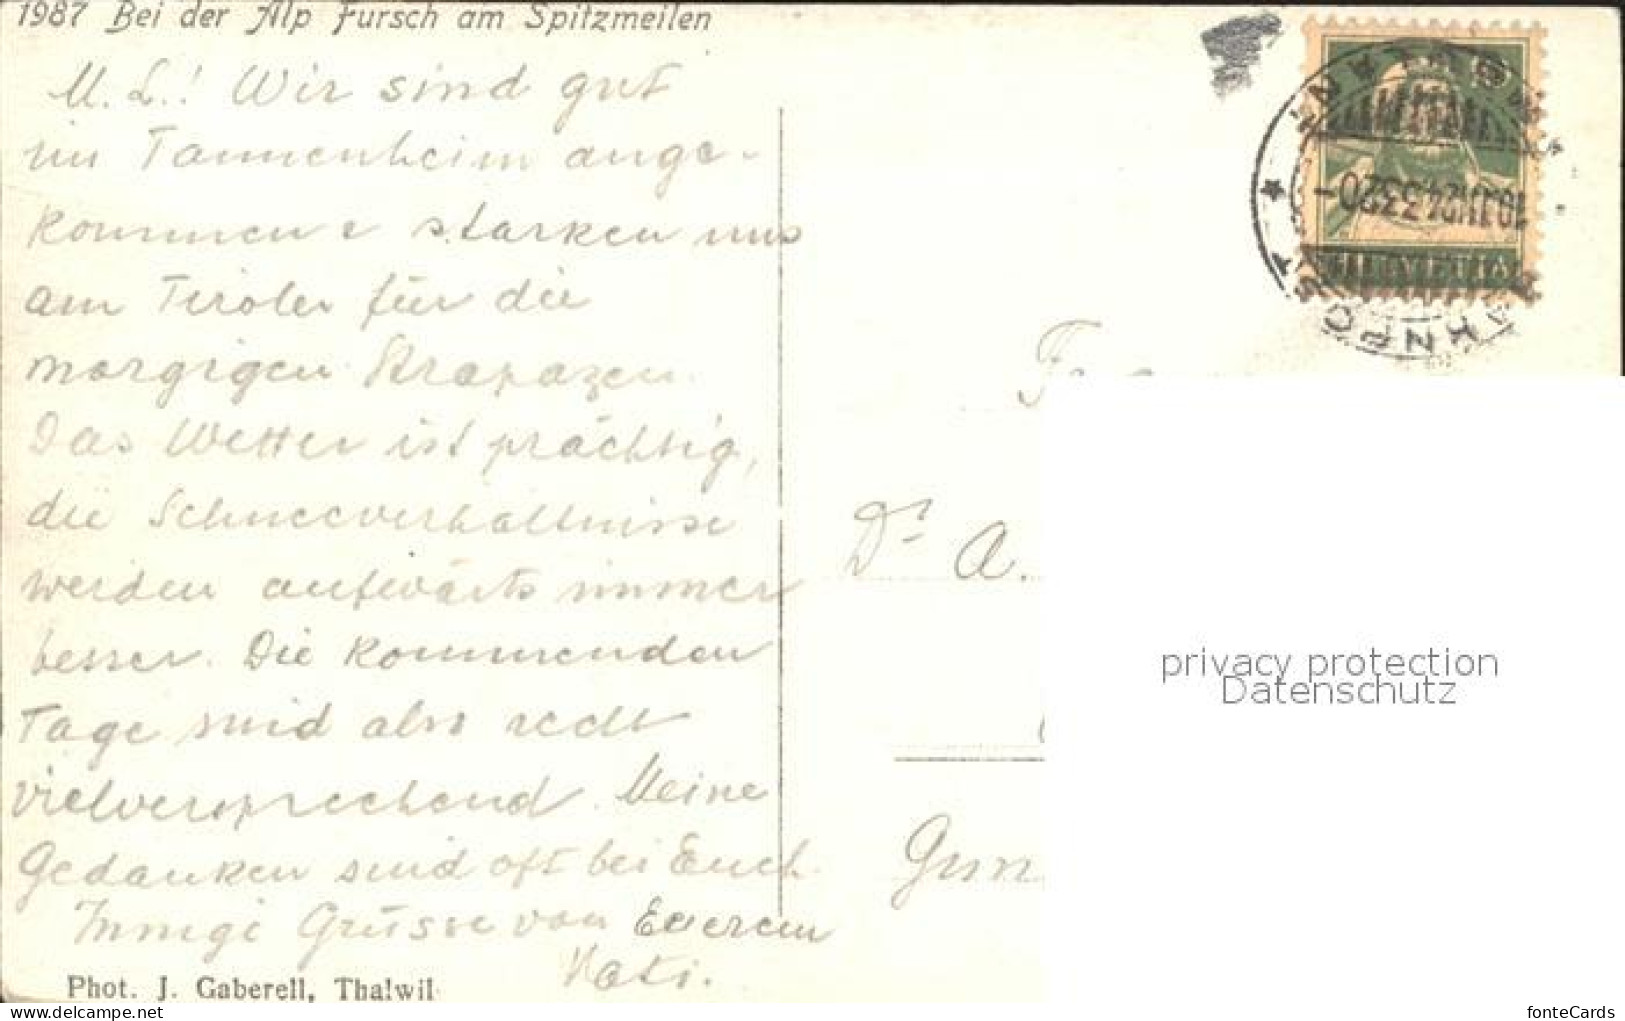 1987 Bei der Alp Fursch am Spitzmeilen
M. L.! Wir sind gut
im Tannenheim ange-
kommen & starken uns
am Tiroler für die
morgigen Strapazen.
Das Wetter ist prächtig,
die Schneeverhältnisse
werden aufwärts immer
besser. Die kommenden
Tage sind also recht
vielversprechend. Meine
Gedanken sind oft bei Euch.
Innige Grüsse von Euerem
Kati.
Phot. J. Gaberell, Thalwil
HELVETIA
Dr A.
Gun
privacy protection
Datenschutz
www.delcampe.net
fonteCards